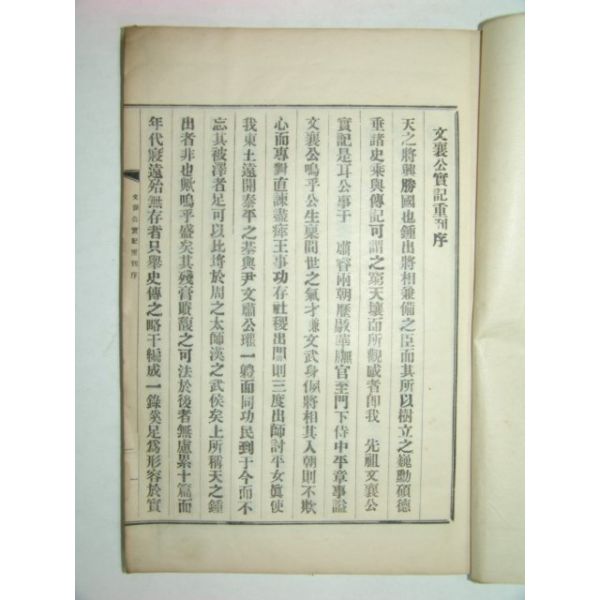 文襄公實記重刊序
天之將興勝國也鍾出將相兼備之臣而其所以樹立之巍勳碩德
重諸史乘與傳記可謂之窮天壤而所觀感者卽我 先祖文襄公
實記是耳公事于 肅睿兩朝歷敭華膴官至門下侍中平章事謚
文襄公嗚乎公生稟間世之氣才兼文武身佩將相其入朝則不欺
心而專對直諫盡瘁王事功存社稷出閫則三度出師討平女眞使
我東土遠開泰平之基與尹文肅公瓘一體而同功民到于今而不
忘其被澤者足可以比埓於周之太師漢之武侯矣上所稱天之鍾
出者非也歟嗚乎盛矣其殘膏賸馥之可法於後者無慮累十篇而
年代寢遠殆無存者只擧史傳之略干編成一錄奚足爲形容於實
文襄公實記重刊序